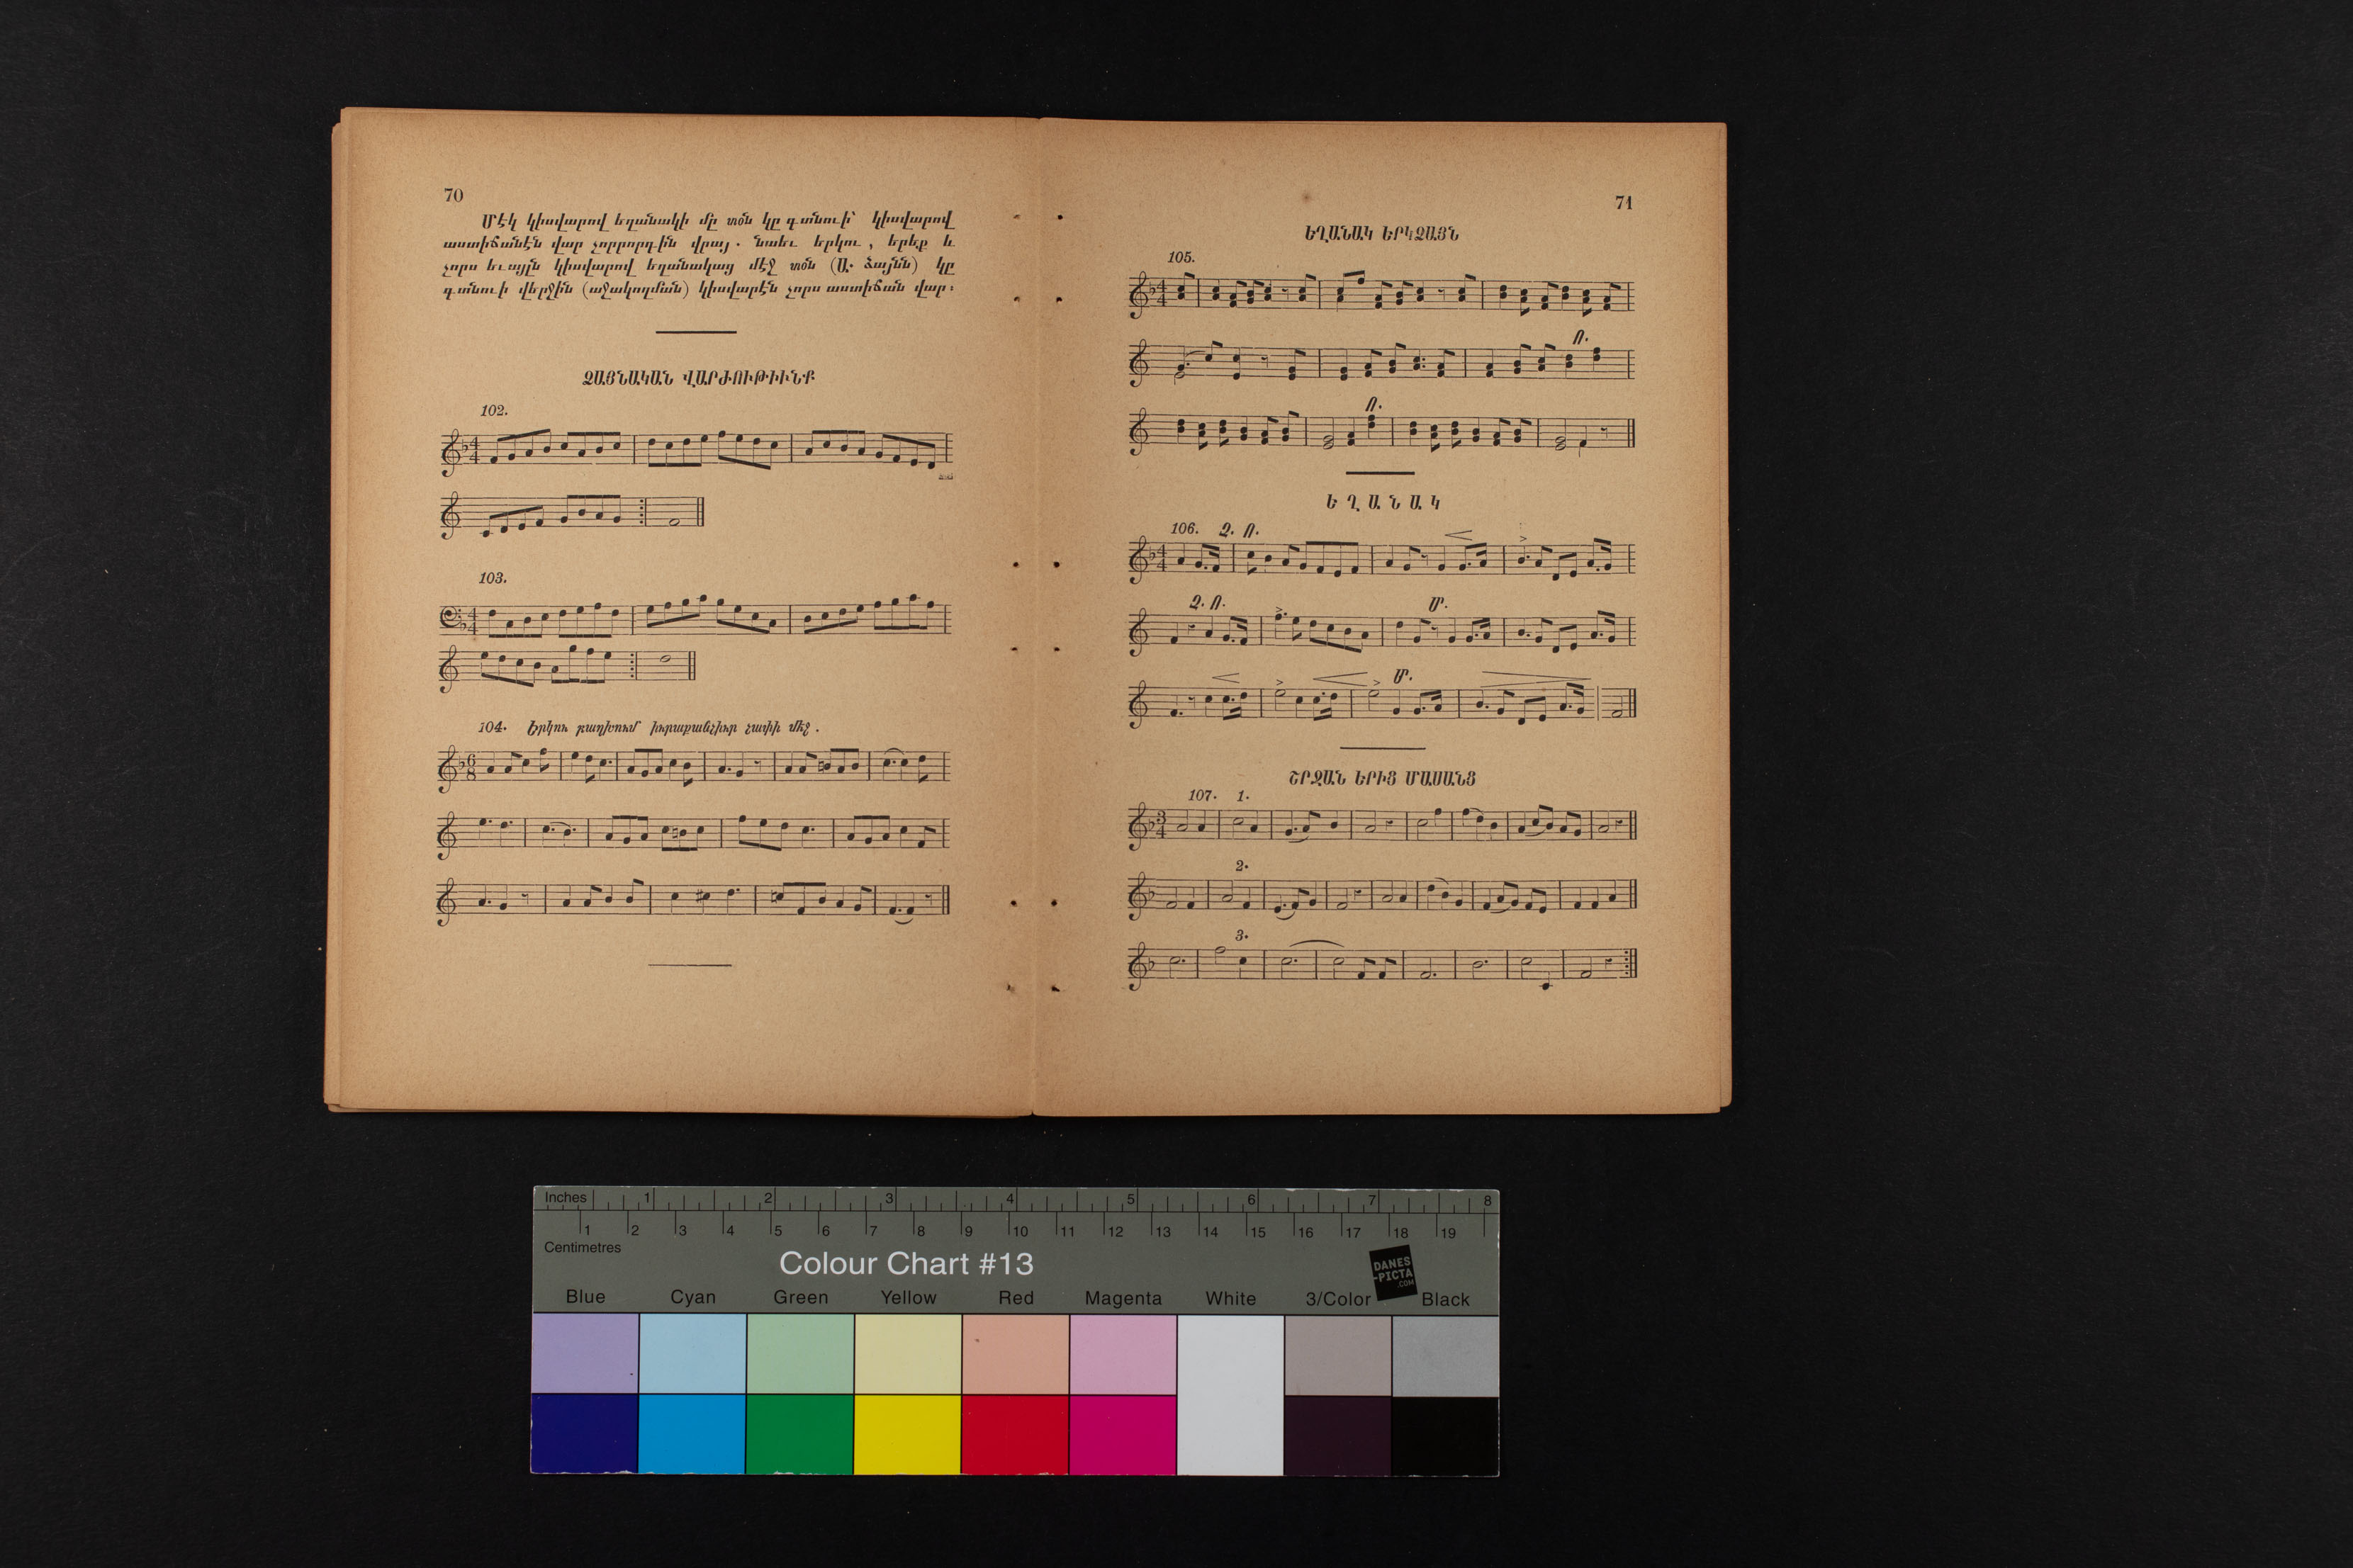 70
Մէկ կիսվարով եղանակի մը տօն կը գտնուի՝ կիսվարով
աստիճանէն վար չորրորդին վրայ. նաեւ երկու, երեք և
չորս եւայլն կիսվարով եղանակաց մէջ տօն (Ա. ձայնն) կը
գտնուի վերջին (աջակողման) կիսվարէն չորս աստիճան վար։
ՁԱՅՆԱԿԱՆ ՎԱՐԺՈՒԹԻՒՆՔ
102.
103.
104. Երկու բաղխում իւրաքանչիւր չափի մէջ.
71
ԵՂԱՆԱԿ ԵՐԿՁԱՅՆ
105.
Ո.
Ո.
ԵՂԱՆԱԿ
106. Զ. Ո.
Զ. Ո. Մ.
Մ.
ՇՐՋԱՆ ԵՐԻՑ ՄԱՍԱՆՑ
107. 1.
2.
3.
Inches 1 2 3 4 5 6 7 8
1 2 3 4 5 6 7 8 9 10 11 12 13 14 15 16 17 18 19
Centimetres
Colour Chart #13
DANES
-PICTA
.COM
Blue Cyan Green Yellow Red Magenta White 3/Color Black